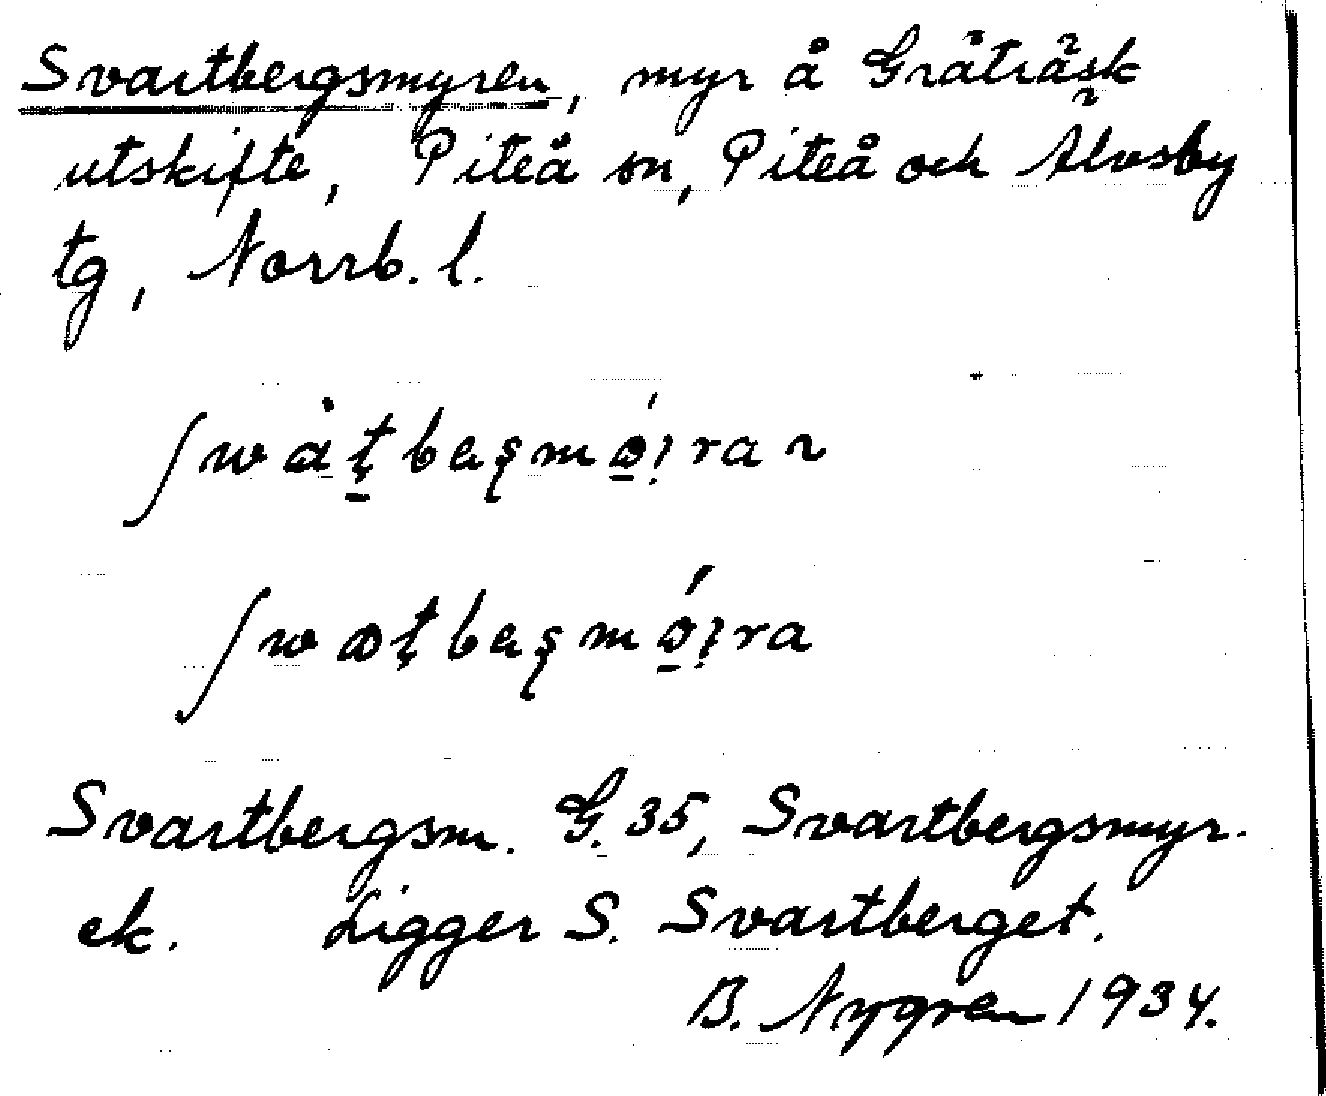 Svartbergsmyren, myr å Gråträsk
utskifte, Piteå sn, Piteå och Älvsby
tg, Norrb. l.
Svartbergsm. G. 35, Svartbergsmyr-
ek. Ligger S. Svartberget.
B. Nygren 1934.